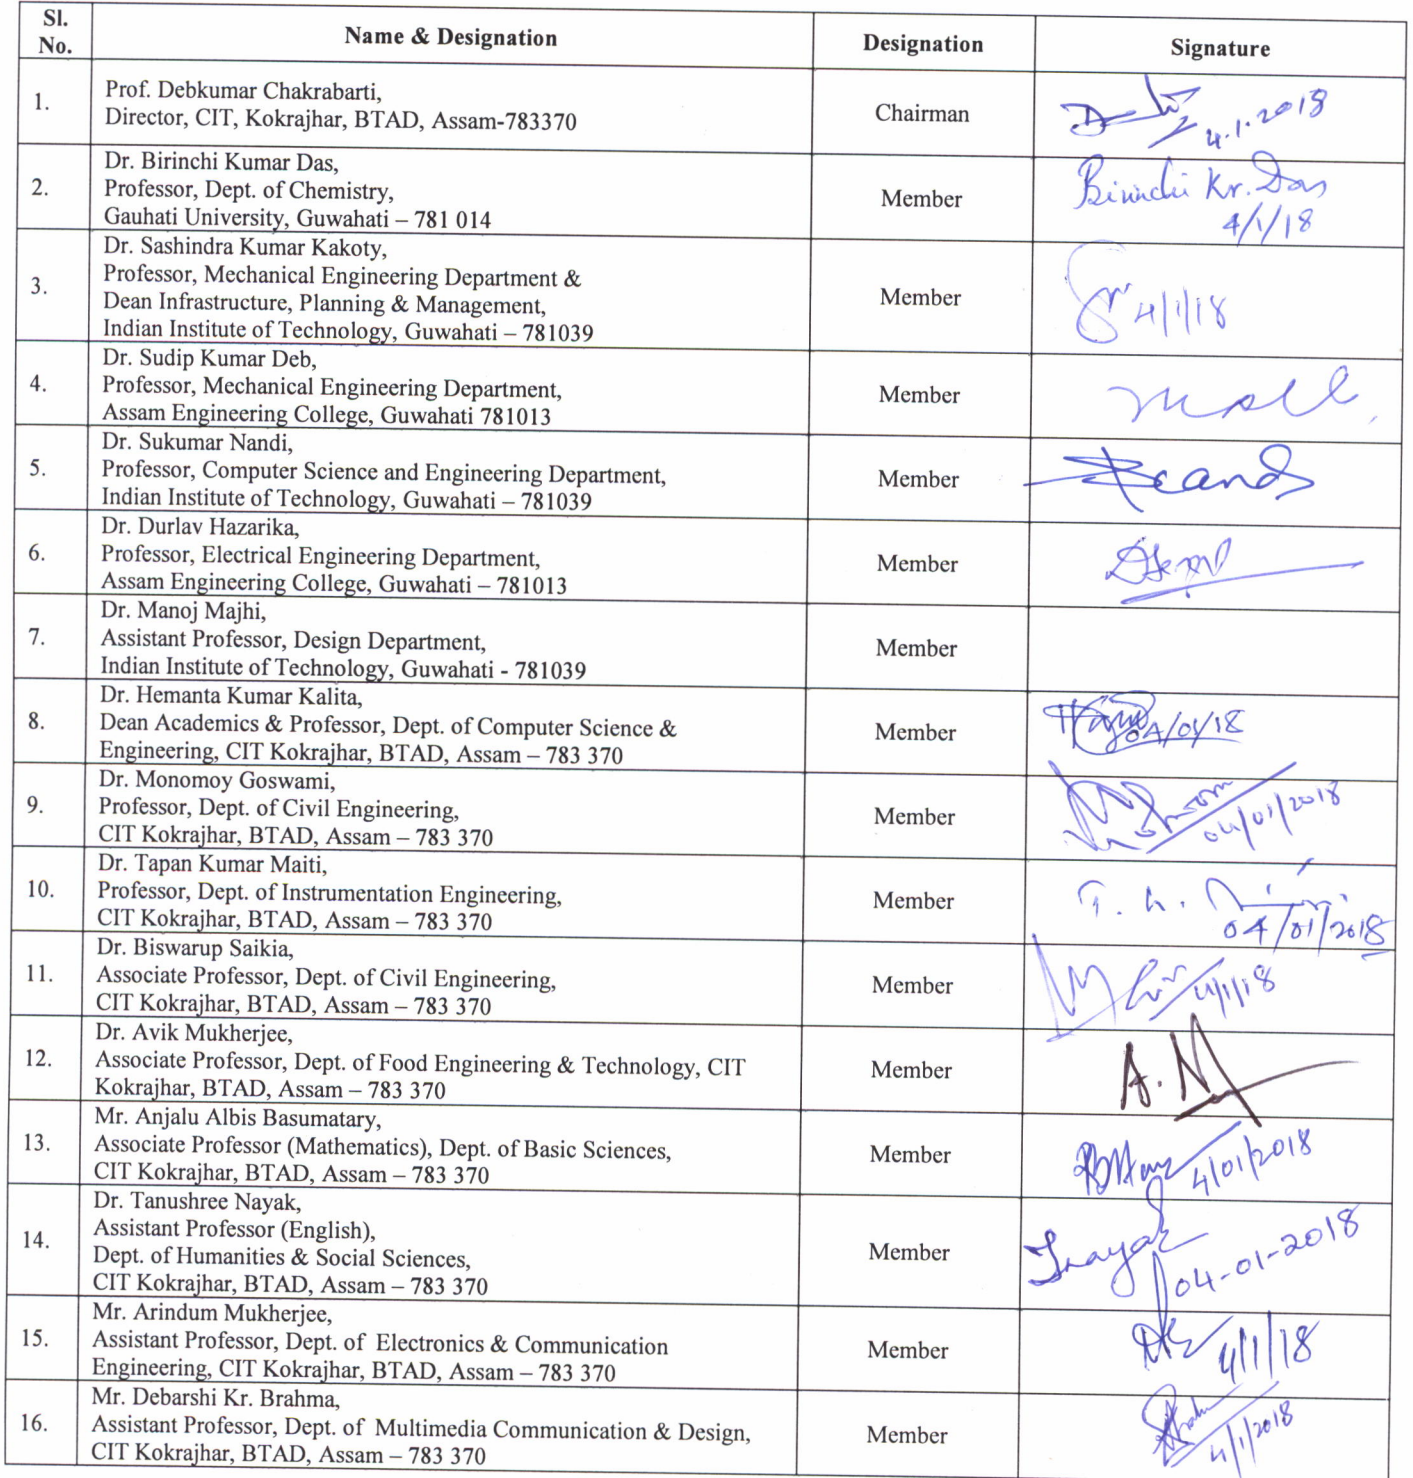 Sl. No.
Name & Designation
Designation
Signature
1.
Prof. Debkumar Chakrabarti,
Director, CIT, Kokrajhar, BTAD, Assam-783370
Chairman
4.1.2018
2.
Dr. Birinchi Kumar Das,
Professor, Dept. of Chemistry,
Gauhati University, Guwahati – 781 014
Member
Birinchi Kr. Das
4/1/18
3.
Dr. Sashindra Kumar Kakoty,
Professor, Mechanical Engineering Department &
Dean Infrastructure, Planning & Management,
Indian Institute of Technology, Guwahati – 781039
Member
4/1/18
4.
Dr. Sudip Kumar Deb,
Professor, Mechanical Engineering Department,
Assam Engineering College, Guwahati 781013
Member
5.
Dr. Sukumar Nandi,
Professor, Computer Science and Engineering Department,
Indian Institute of Technology, Guwahati – 781039
Member
6.
Dr. Durlav Hazarika,
Professor, Electrical Engineering Department,
Assam Engineering College, Guwahati – 781013
Member
7.
Dr. Manoj Majhi,
Assistant Professor, Design Department,
Indian Institute of Technology, Guwahati - 781039
Member
8.
Dr. Hemanta Kumar Kalita,
Dean Academics & Professor, Dept. of Computer Science &
Engineering, CIT Kokrajhar, BTAD, Assam – 783 370
Member
04/01/18
9.
Dr. Monomoy Goswami,
Professor, Dept. of Civil Engineering,
CIT Kokrajhar, BTAD, Assam – 783 370
Member
04/01/2018
10.
Dr. Tapan Kumar Maiti,
Professor, Dept. of Instrumentation Engineering,
CIT Kokrajhar, BTAD, Assam – 783 370
Member
04/01/2018
11.
Dr. Biswarup Saikia,
Associate Professor, Dept. of Civil Engineering,
CIT Kokrajhar, BTAD, Assam – 783 370
Member
4/1/18
12.
Dr. Avik Mukherjee,
Associate Professor, Dept. of Food Engineering & Technology, CIT
Kokrajhar, BTAD, Assam – 783 370
Member
A. M
13.
Mr. Anjalu Albis Basumatary,
Associate Professor (Mathematics), Dept. of Basic Sciences,
CIT Kokrajhar, BTAD, Assam – 783 370
Member
4/01/2018
14.
Dr. Tanushree Nayak,
Assistant Professor (English),
Dept. of Humanities & Social Sciences,
CIT Kokrajhar, BTAD, Assam – 783 370
Member
Tnayak
04-01-2018
15.
Mr. Arindum Mukherjee,
Assistant Professor, Dept. of Electronics & Communication
Engineering, CIT Kokrajhar, BTAD, Assam – 783 370
Member
4/1/18
16.
Mr. Debarshi Kr. Brahma,
Assistant Professor, Dept. of Multimedia Communication & Design,
CIT Kokrajhar, BTAD, Assam – 783 370
Member
4/1/2018